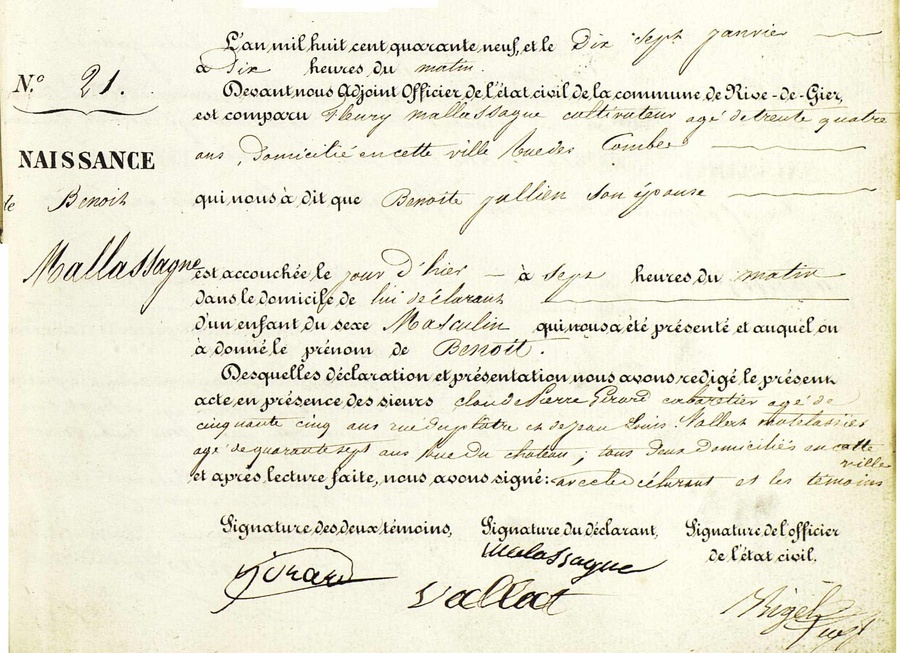 N.° 21.
NAISSANCE
de Benoit
Mallassagne
L'an mil huit cent quarante neuf, et le Dix Sept janvier
à Dix heures du matin.
Devant nous Adjoint Officier de l'état civil de la commune de Rive-de-Gier,
est comparu Fleury Mallassagne cultivateur agé de trente quatre
ans, Domicilié en cette ville Rue des Combes
qui nous à dit que Benoite jullien son épouse
est accouchée le jour d'hier à Sept heures du matin
dans le domicile de lui déclarant
d'un enfant du sexe Masculin qui nous a été présenté et auquel on
à donné le prénom de Benoit.
Desquelles déclaration et présentation nous avons redigé le présent
acte en présence des sieurs Claude Pierre Girard cabaretier agé de
cinquante cinq ans rue du plâtre et de jean Louis Vallert matelassier
agé de quarante sept ans Rue du chateau, tous Deux domiciliés en cette
ville
et après lecture faite, nous avons signé: avec le déclarant et les témoins
Signature des deux témoins, Signature du déclarant, Signature de l'officier
de l'état civil.
Girard
malassagne
Vallat